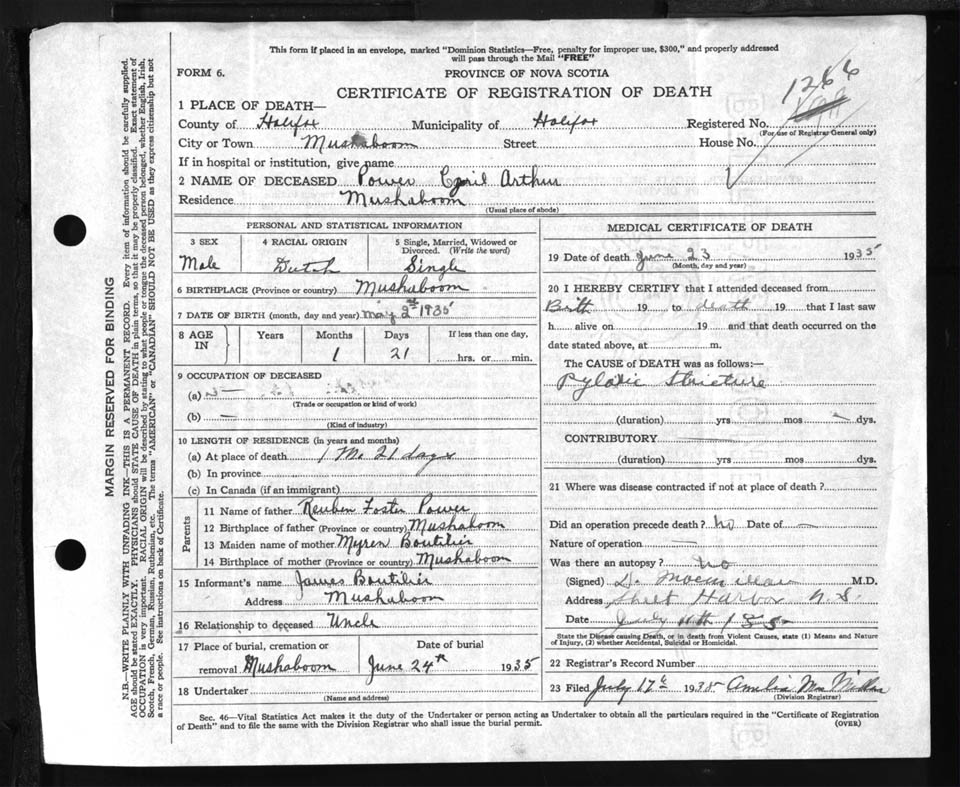 This form if placed in an envelope, marked "Dominion Statistics—Free, penalty for improper use, $300," and properly addressed
will pass through the Mail "FREE"
FORM 6.
PROVINCE OF NOVA SCOTIA
CERTIFICATE OF REGISTRATION OF DEATH
1266
1 PLACE OF DEATH—
County of Halifax Municipality of Halifax Registered No.
(For use of Registrar General only)
City or Town Mushaboom Street House No.
If in hospital or institution, give name
2 NAME OF DECEASED Power Cyril Arthur
Residence Mushaboom
(Usual place of abode)
PERSONAL AND STATISTICAL INFORMATION
3 SEX 4 RACIAL ORIGIN 5 Single, Married, Widowed or
Divorced. (Write the word)
Male Dutch Single
6 BIRTHPLACE (Province or country) Mushaboom
7 DATE OF BIRTH (month, day and year) May 2nd 1935
8 AGE IN Years Months Days If less than one day,
1 21 hrs. or min.
9 OCCUPATION OF DECEASED
(a) —
(Trade or occupation or kind of work)
(b) —
(Kind of industry)
10 LENGTH OF RESIDENCE (in years and months)
(a) At place of death 1 Mo 21 days
(b) In province
(c) In Canada (if an immigrant)
Parents
11 Name of father Reuben Foster Power
12 Birthplace of father (Province or country) Mushaboom
13 Maiden name of mother Myren Boutilier
14 Birthplace of mother (Province or country) Mushaboom
15 Informant's name James Boutilier
Address Mushaboom
16 Relationship to deceased Uncle
17 Place of burial, cremation or Date of burial
removal Mushaboom June 24th 1935
18 Undertaker
(Name and address)
MEDICAL CERTIFICATE OF DEATH
19 Date of death June 23 1935
(Month, day and year)
20 I HEREBY CERTIFY that I attended deceased from
Birth 19 to death 19 that I last saw
h alive on 19 and that death occurred on the
date stated above, at m.
The CAUSE OF DEATH was as follows:—
Pyloric Stricture
(duration) yrs mos — dys.
CONTRIBUTORY
(duration) yrs mos dys.
21 Where was disease contracted if not at place of death?
Did an operation precede death? no Date of —
Nature of operation —
Was there an autopsy? no
(Signed) D. Macmillan M.D.
Address Sheet Harbor N.S.
Date July
State the Disease causing Death, or in death from Violent Causes, state (1) Means and Nature
of Injury, (2) whether Accidental, Suicidal or Homicidal.
22 Registrar's Record Number
23 Filed July 17th 1935 Amelia MacMillan
(Division Registrar)
Sec. 46—Vital Statistics Act makes it the duty of the Undertaker or person acting as Undertaker to obtain all the particulars required in the "Certificate of Registration
of Death" and to file the same with the Division Registrar who shall issue the burial permit. (OVER)
MARGIN RESERVED FOR BINDING
N.B.—WRITE PLAINLY WITH UNFADING INK—THIS IS A PERMANENT RECORD. Every item of information should be carefully supplied.
AGE should be stated EXACTLY. PHYSICIANS should STATE CAUSE OF DEATH in plain terms, so that it may be properly classified. Exact statement of
OCCUPATION is very important. RACIAL ORIGIN will be described by stating to what people or tongue the deceased person belonged, whether English, Irish,
Scotch, French, German, Russian, Ruthenian, etc. The terms "AMERICAN" or "CANADIAN" SHOULD NOT BE USED as they express citizenship but not
a race or people. See instructions on back of Certificate.